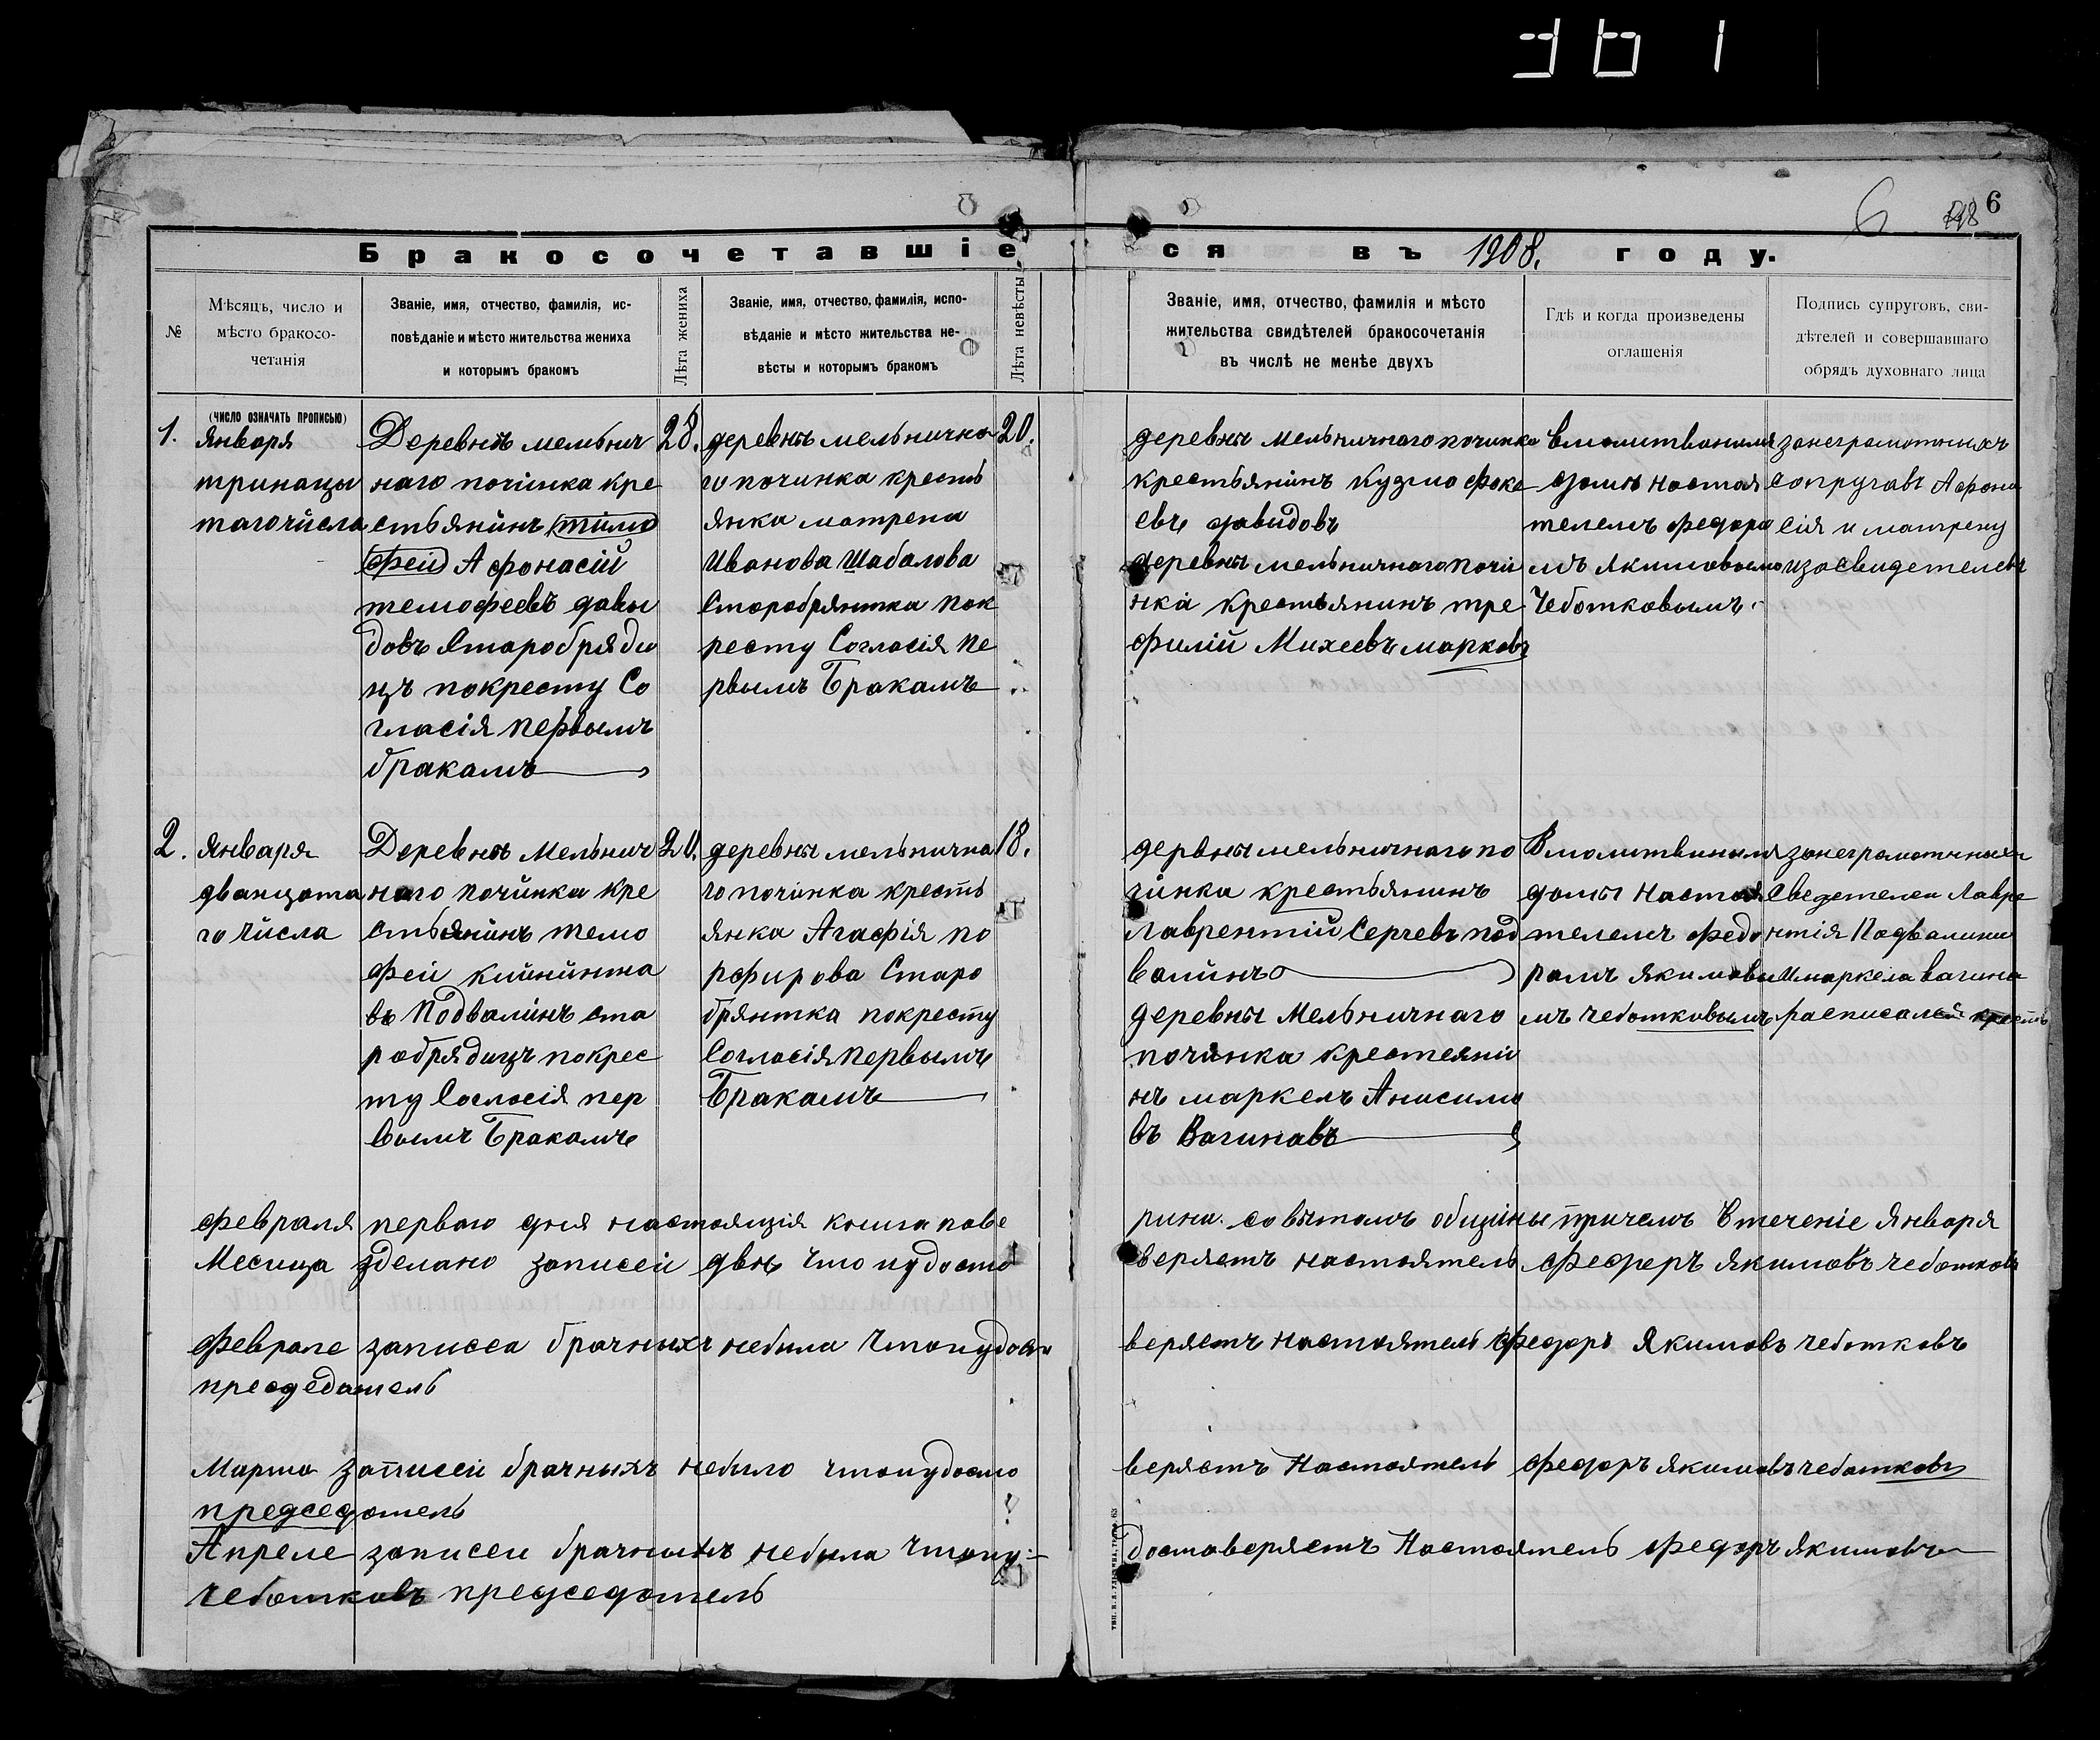 6
6
Бракосочетавшіеся въ 1908. году.
№
Мѣсяцъ, число и
мѣсто бракосо-
четанія
Званіе, имя, отчество, фамилія, ис-
повѣданіе и мѣсто жительства жениха
и которымъ бракомъ
Лѣта жениха
Званіе, имя, отчество, фамилія, испо-
вѣданіе и мѣсто жительства не-
вѣсты и которымъ бракомъ
Лѣта невѣсты
Званіе, имя, отчество, фамилія и мѣсто
жительства свидѣтелей бракосочетанія
въ числѣ не менѣе двухъ
Гдѣ и когда произведены
оглашенія
Подпись супруговъ, сви-
дѣтелей и совершавшаго
обрядъ духовнаго лица
(число означать прописью)
1.
Января
тринацы
тагочйсла
Деревнѣ мельнич
наго почiнка кре
стьянинъ (тімо
фей) Афонасій
темофеевъ давы
довъ Старобрядц
цъ покресту Со
гласія первымъ
бракамъ
28.
деревны мельнична
го починка кресть
янка матрена
Иванова Шабалова
Старобрянтка пок
ресту Согласія пе
рвымъ Бракамъ
20.
деревны Мельничнаго починка
крестьянинъ Кузма фоке
евъ давидовъ
деревны мельничнаго почи
нка крестьянинъ тре
филій Михеевъ марковъ
Вмолитваннамъ
домѣ настоя
телемъ федоро
мъ якимовымъ
Чеботковымъ.
занеграмотныхъ
сопругавъ Афона
сія и матрену
изасвидетелевъ
2.
Января
дванцата
го Чйсла
Деревнѣ Мельнич
наго почйнка кре
стьянинъ темо
фей
въ Подвалинъ ста
робрядицъ покрес
ту Согласія пер
вымъ Бракамъ
20.
деревны мельнична
го починка кресть
янка Агафія по
рфирова Старо
брянтка покресту
Согласія первымъ
Бракамъ
18.
дервны мельничнаго по
чинка крестьянинъ
Лаврентій Сергевъ под
валинъ
деревны Мельничнаго
починка крестеяни
нъ маркелъ Анисимо
въ Вагинавъ
Вмолитвинамъ
домы настоя
телемъ федо
рамъ якимовы
мъ чеботковымъ
занеграмотныхъ
Сведетелеи Лавре
нтія Подвалина
Имаркела вагина
расписалсй
февраля первого дня настоящія книга пове
рина. советомъ общины причемъ Втеченіе Января
Месица зделано записей двѣ что удосто
веряетъ настоятель Федеръ якимовъ чеботковъ
феврале записеа брачныхъ небыла Что удост
веряетъ настоятель Федоръ Якимовъ чеботковъ
преседатель
Марта записей брачныхъ небыло что удосто
веряетъ Настоятель федоръ якимовъ чеботковъ
председатель
Апреле записеи брачныхъ небыла Что у-
доставеряетъ Настоятель федоръ якимовъ
чеботковъ председатель